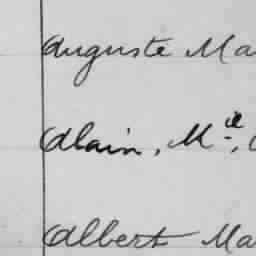 Auguste Ma
Alain, M.el,
Albert Ma